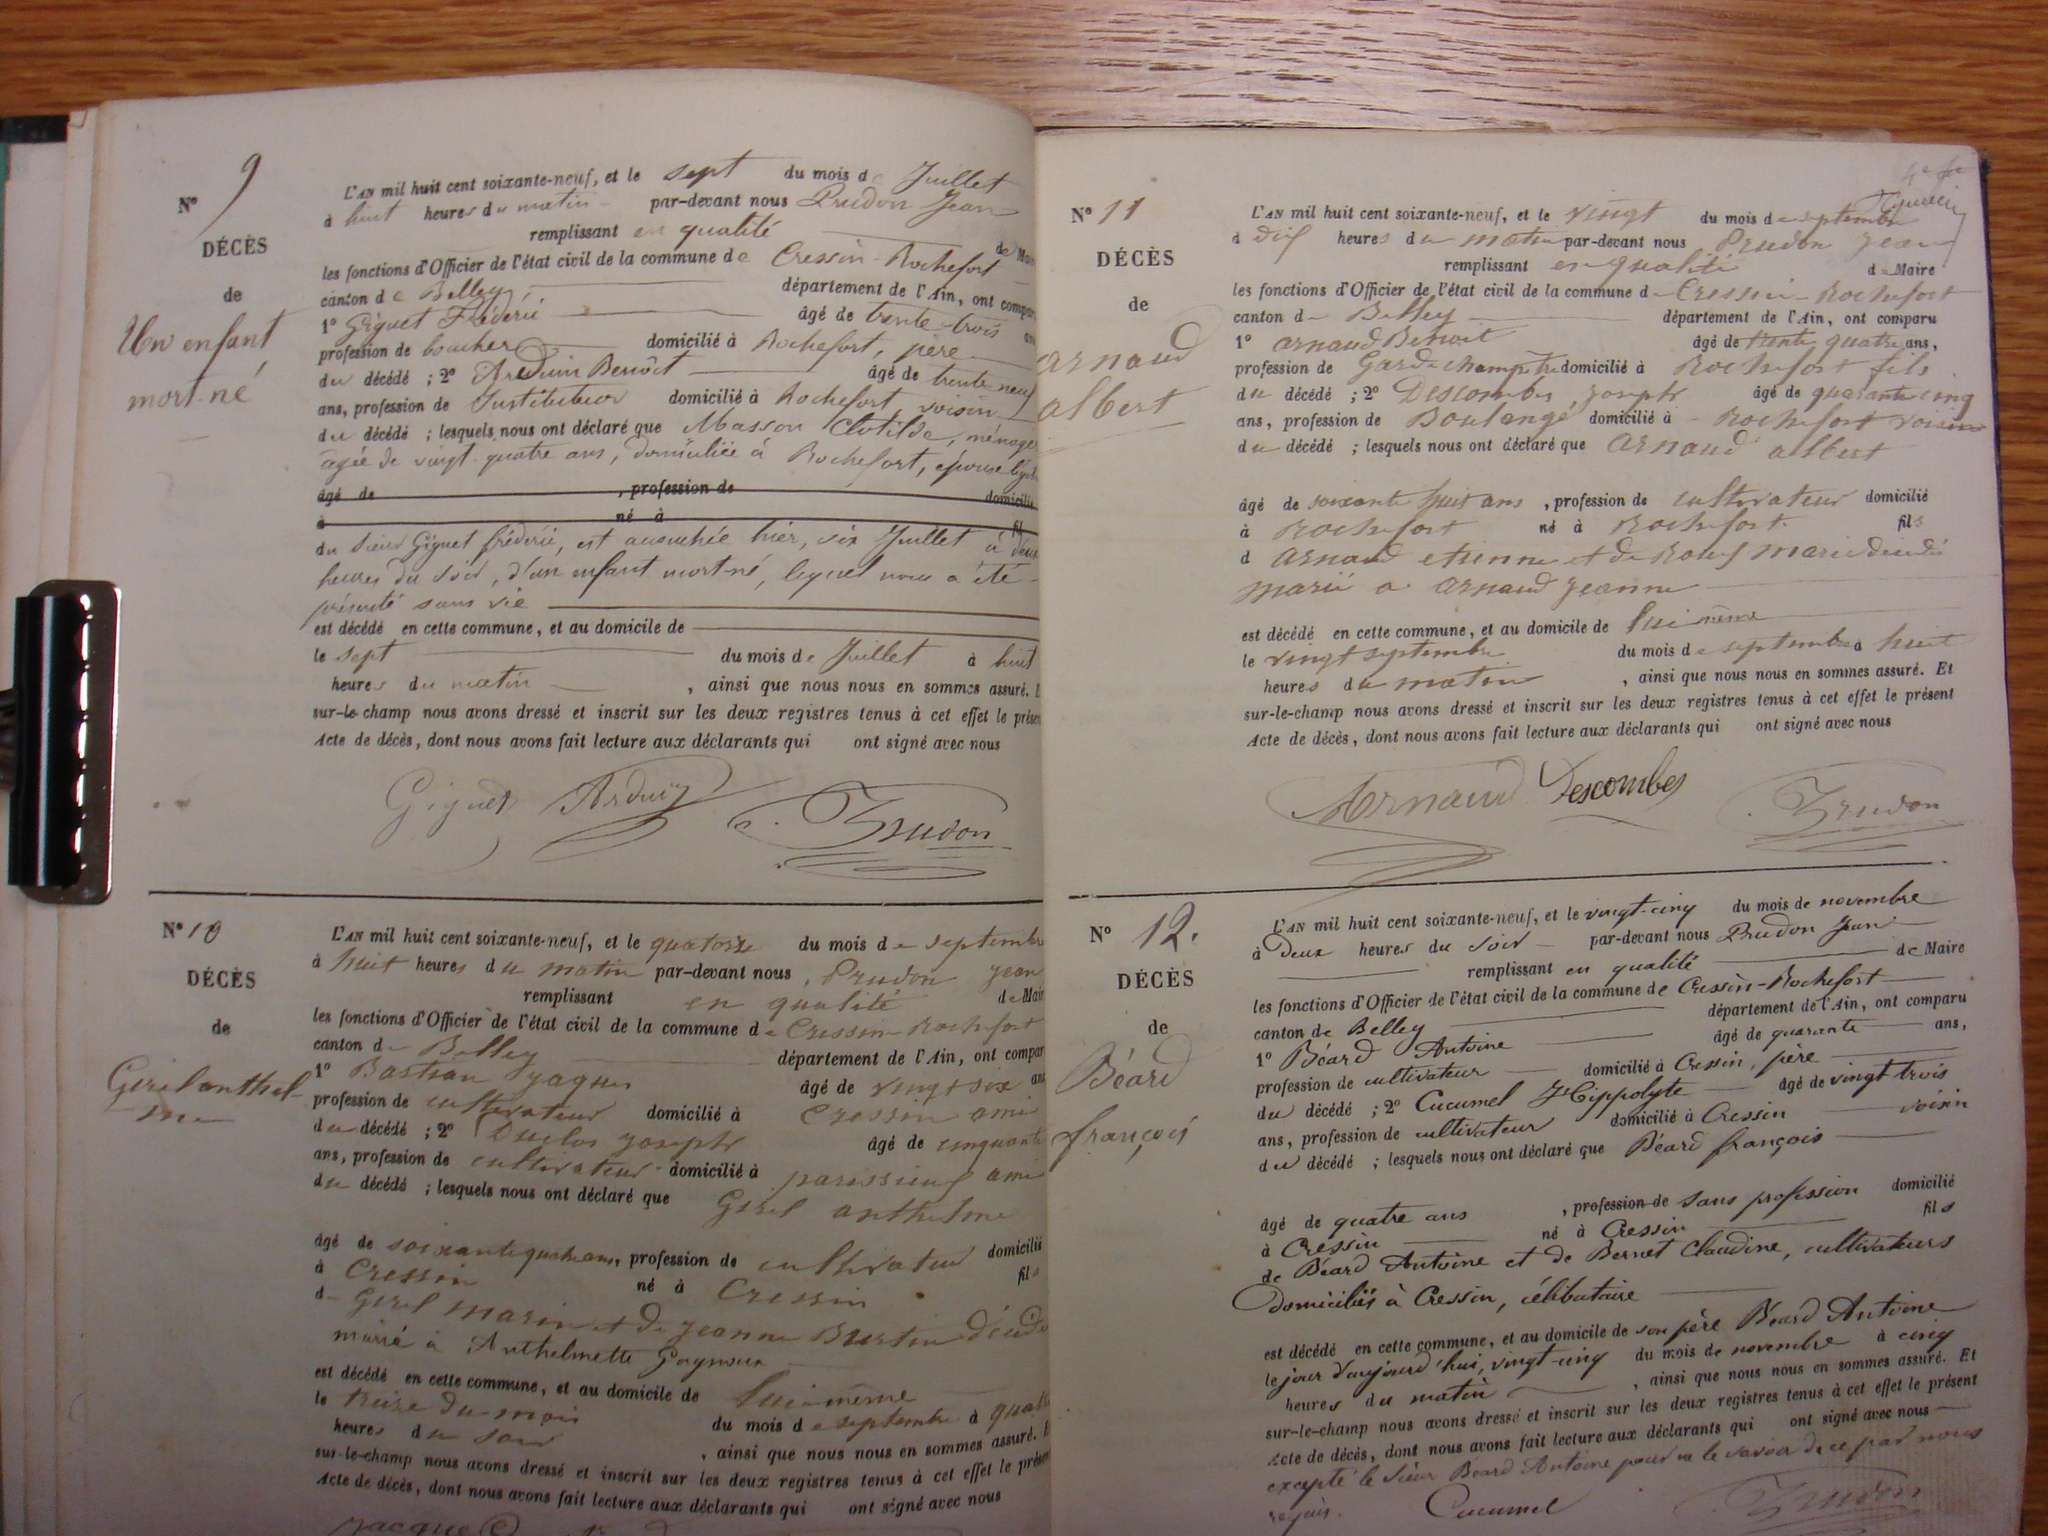 N° 9
DÉCÈS
de
Un enfant
mort-né
L'AN mil huit cent soixante-neuf, et le sept du mois de Juillet
à huit heures du matin par-devant nous Prudon Jean
remplissant en qualité de Maire
les fonctions d'Officier de l'état civil de la commune de Cressin-Rochefort
canton de Belley département de l'Ain, ont comparu
1° Giguet Fréderic âgé de trente-trois ans
profession de boucher domicilié à Rochefort, père
du décédé ; 2° Arduin Benoît âgé de trente-neuf
ans, profession de Instituteur domicilié à Rochefort, voisin
du décédé ; lesquels nous ont déclaré que Masson Clotilde, ménagère
agée de vingt-quatre ans, domiciliée à Rochefort, épouse
âgé de , profession de domicilié
à né à fil
du sieur Giguet fréderic, est accouchée hier, six Juillet à deux
heures du soir, d'un enfant mort-né, lequel nous a été
présenté sans vie
est décédé en cette commune, et au domicile de
le sept du mois de Juillet à huit
heures du matin , ainsi que nous nous en sommes assuré. E
sur-le-champ nous avons dressé et inscrit sur les deux registres tenus à cet effet le présen
Acte de décès, dont nous avons fait lecture aux déclarants qui ont signé avec nous
Giguet Arduin Prudon
N° 10
DÉCÈS
de
Girel anthel-
me
L'AN mil huit cent soixante-neuf, et le quatorze du mois de septembre
à huit heures du matin par-devant nous Prudon jean
remplissant en qualité de Maire
les fonctions d'Officier de l'état civil de la commune de Cressin Rochefort
canton de Belley département de l'Ain, ont compar
1° Bastian jaques âgé de vingt six ans
profession de cultivateur domicilié à Cressin ami
du décédé ; 2° Duclos joseph âgé de cinquante
ans, profession de cultivateur domicilié à parissieux ami
du décédé ; lesquels nous ont déclaré que Girel anthelme
âgé de soixante quatre ans, profession de cultivateur domicilié
à Cressin né à Cressin fils
d Girel marin et de jeanne Burtin
marié à Anthelmette
est décédé en cette commune, et au domicile de lui-même
le treize du mois du mois de septembre à quatre
heures du soir , ainsi que nous nous en sommes assuré. E
sur-le-champ nous avons dressé et inscrit sur les deux registres tenus à cet effet le présen
Acte de décès, dont nous avons fait lecture aux déclarants qui ont signé avec nous
N° 11
DÉCÈS
de
arnaud
albert
L'AN mil huit cent soixante-neuf, et le vingt du mois de septembre
à dix heures du matin par-devant nous Prudon jean
remplissant en qualité de Maire
les fonctions d'Officier de l'état civil de la commune d Cressin-Rochefort
canton d Belley département de l'Ain, ont comparu
1° arnaud Benoit âgé de trente quatre ans,
profession de Garde champêtre domicilié à Rochefort fils
du décédé ; 2° Descombes joseph âgé de quarante cinq
ans, profession de Boulangé domicilié à Rochefort voisin
du décédé ; lesquels nous ont déclaré que arnaud albert
âgé de soixante huit ans , profession de cultivateur domicilié
à Rochefort né à Rochefort fils
d arnaud etienne et de Roux marie
marié a arnaud jeanne
est décédé en cette commune, et au domicile de lui même
le vingt septembre du mois de septembre à huit
heures du matin , ainsi que nous nous en sommes assuré. Et
sur-le-champ nous avons dressé et inscrit sur les deux registres tenus à cet effet le présent
Acte de décès, dont nous avons fait lecture aux déclarants qui ont signé avec nous
Arnaud Descombes Prudon
N° 12.
DÉCÈS
de
Béard
françois
L'AN mil huit cent soixante-neuf, et le vingt-cinq du mois de novembre
à Deux heures du soir par-devant nous Prudon Jean
remplissant en qualité de Maire
les fonctions d'Officier de l'état civil de la commune de Cressin-Rochefort
canton de Belley département de l'Ain, ont comparu
1° Béard Antoine âgé de quarante ans,
profession de cultivateur domicilié à Cressin, père
du décédé ; 2° Cucumel Hippolyte âgé de vingt trois
ans, profession de cultivateur domicilié à Cressin voisin
du décédé ; lesquels nous ont déclaré que Béard françois
âgé de quatre ans , profession de sans profession domicilié
à Cressin né à Cressin fils
de Béard Antoine et de Bernet Claudine, cultivateurs
domiciliés à Cressin, célibataire
est décédé en cette commune, et au domicile de son père Béard Antoine
le jour d'aujourd'hui, vingt-cinq du mois de novembre à cinq
heures du matin , ainsi que nous nous en sommes assuré. Et
sur-le-champ nous avons dressé et inscrit sur les deux registres tenus à cet effet le présent
Acte de décès, dont nous avons fait lecture aux déclarants qui ont signé avec nous
excepté le sieur Béard Antoine pour ne le savoir de ce par nous
requis. Cucumel Prudon